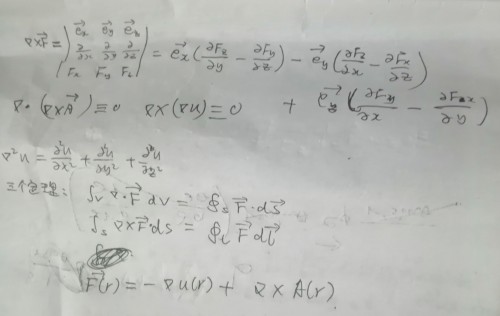 ∇×F⃗ = | e⃗x e⃗y e⃗z ; ∂/∂x ∂/∂y ∂/∂z ; Fx Fy Fz | = e⃗x(∂Fz/∂y − ∂Fy/∂z) − e⃗y(∂Fz/∂x − ∂Fx/∂z)
+ e⃗z(∂Fy/∂x − ∂Fx/∂y)
∇·(∇×A⃗)≡0 ∇×(∇u)≡0
∇²u = ∂²u/∂x² + ∂²u/∂y² + ∂²u/∂z²
三个定理: ∫v ∇·F⃗ dv = ∮s F⃗·dS⃗
∫s ∇×F⃗·ds = ∮l F⃗ dl⃗
F⃗(r) = −∇u(r) + ∇×A(r)